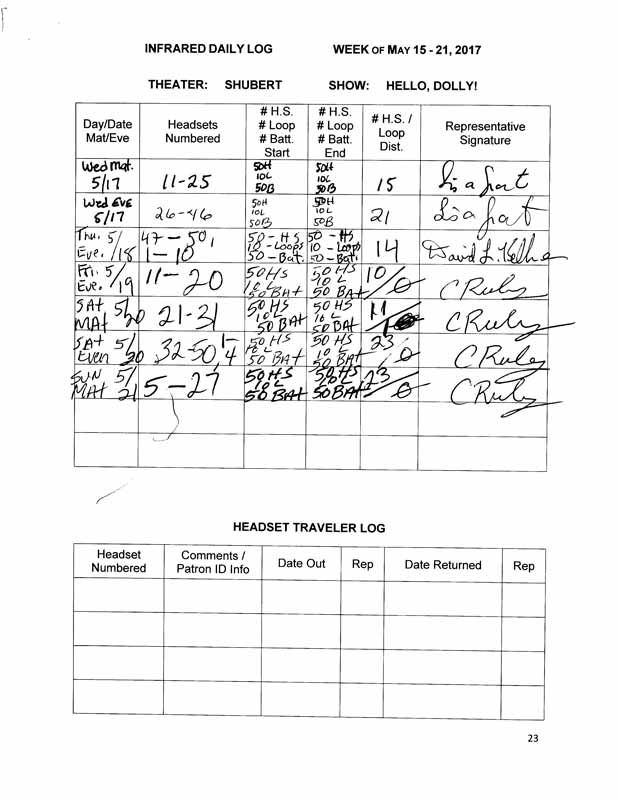 INFRARED DAILY LOG WEEK OF MAY 15 - 21, 2017
THEATER: SHUBERT SHOW: HELLO, DOLLY!
Day/Date Mat/Eve Headsets Numbered # H.S. # Loop # Batt. Start # H.S. # Loop # Batt. End # H.S. / Loop Dist. Representative Signature
Wed Mat. 5/17 11-25 50H 10L 50B 50H 10L 50B 15
Wed Eve 5/17 26-46 50H 10L 50B 50H 10L 50B 21
Thu. 5/18 Eve. 47-50, 1-10 50-HS 10-Loops 50-Bat. 50-HS 10-Loops 50-Bat. 14 David L.
Fri. 5/19 Eve. 11-20 50HS 10L 50 BAT 50HS 10L 50 BAT 10/0 C Ruley
SAT 5/20 MAT 21-31 50 HS 10L 50 BAT 50 HS 10L 50 BAT 11/0 C Ruley
SAT 5/20 Even 32-50, 1-4 50HS 10L 50 BAT 50 HS 10L 50 BAT 23/0 C Ruley
SUN 5/21 MAT 5-27 50HS 10L 50 BAT 50HS 10L 50 BAT 23/0 C Ruley
HEADSET TRAVELER LOG
Headset Numbered Comments / Patron ID Info Date Out Rep Date Returned Rep
23